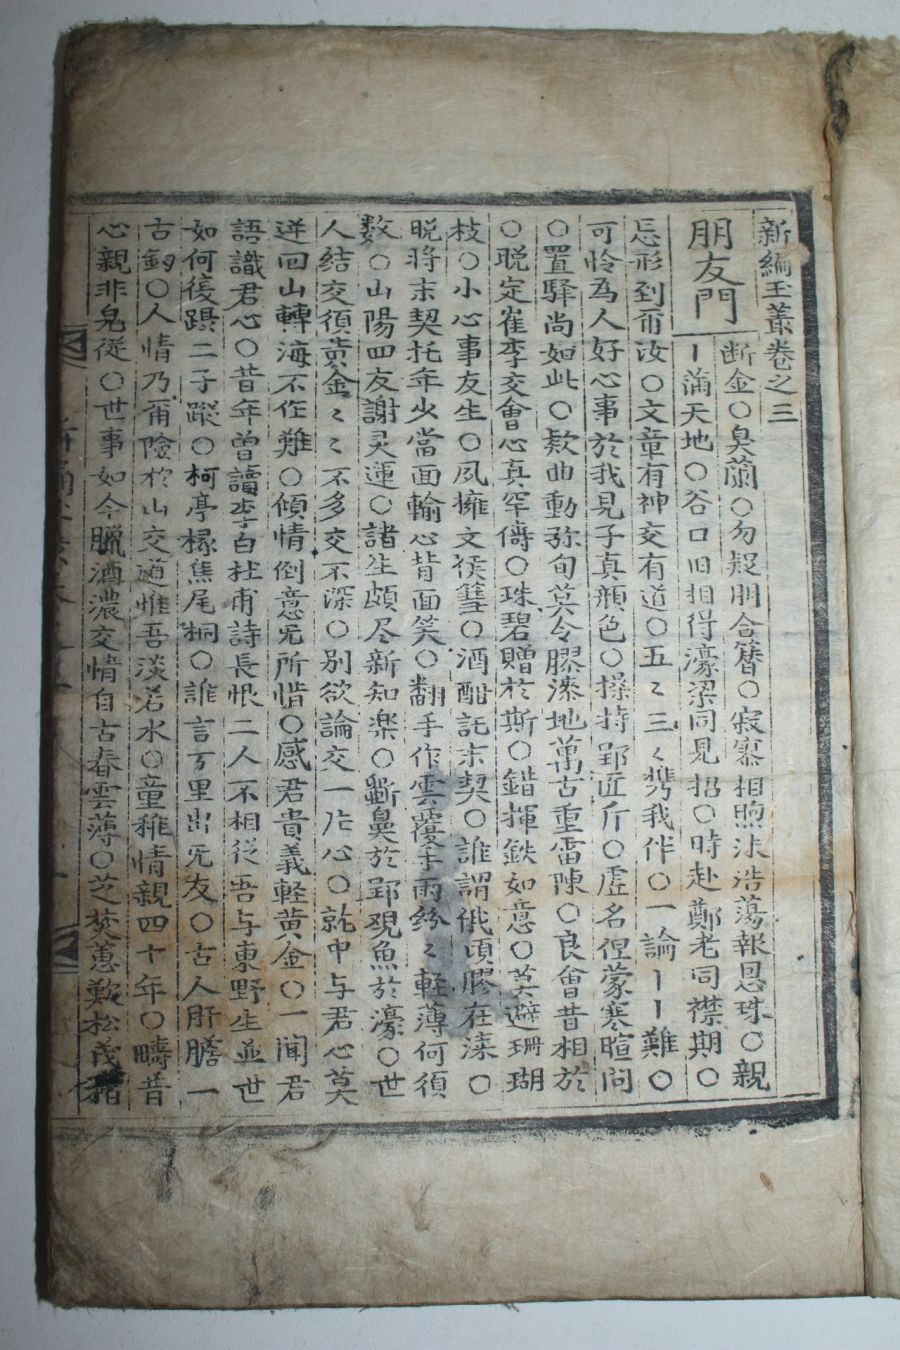 新編玉叢卷之三
朋友門
断金○臭蘭○勿疑朋合簪○寂寞相煦沫浩蕩報恩珠○親
丨滿天地○谷口旧相得濠梁同見招○時赴鄭老同襟期○
忘形到甭汝○文章有神交有道○五〻三〻携我伴○一論丨丨難○
可怜為人好心事於我見子真顔色○操持郢匠斤○虛名但蒙寒暄问
○置驛尚如此○欵曲動弥旬莫令膠漆地萬古重雷陳○良會昔相於
○晩定崔李交會心真罕儔○珠碧贈於斯○錯揮鉄如意○莫避珊瑚
枝○小心事友生○夙擁文侯篲○酒酣託末契○誰謂俄頃膠在漆○
晩将末契托年少當面輸心背面笑○翻手作雲覆手雨紛〻軽薄何須
数○山陽四友謝灵運○諸生頗尽新知楽○斷鼻於郢覌魚於濠○世
人結交須黄金〻〻不多交不深○别欲論交一片心○就中与君心莫
逆回山轉海不作難○傾情倒意旡所惜○感君貴義軽黄金○一聞君
語識君心○昔年曾讀李白杜甫詩長恨二人不相従吾与東野生並世
如何復躡二子蹤○柯亭椽焦尾桐○誰言万里出旡友○古人肝膽一
古釼○人情乃甭險於山交道惟吾淡若水○童稚情親四十年○疇昔
心親非皃従○世事如今臘酒濃交情自古春雲薄○芝焚蕙歎松茂